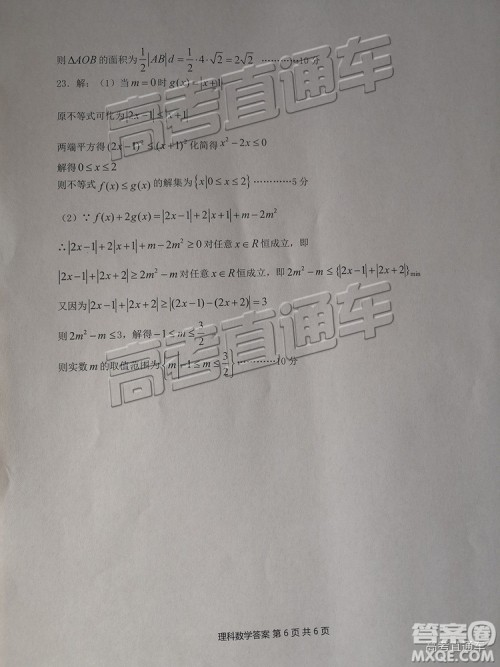 则 ΔAOB 的面积为 1/2|AB|d = 1/2·4·√2 = 2√2 …………10 分
23. 解：（1）当 m=0 时 g(x)=|x+1|
原不等式可化为|2x-1|≤|x+1|
两端平方得(2x-1)²≤(x+1)² 化简得 x²-2x≤0
解得 0≤x≤2
则不等式 f(x)≤g(x) 的解集为{x|0≤x≤2} …………5 分
（2）∵ f(x)+2g(x)=|2x-1|+2|x+1|+m-2m²
∴|2x-1|+2|x+1|+m-2m²≥0 对任意 x∈R 恒成立，即
|2x-1|+|2x+2|≥2m²-m 对任意 x∈R 恒成立，即 2m²-m≤{|2x-1|+|2x+2|}min
又因为|2x-1|+|2x+2|≥|(2x-1)-(2x+2)|=3
则 2m²-m≤3，解得 -1≤m≤3/2，
则实数 m 的取值范围为{m|-1≤m≤3/2} …………10 分
高考直通车
高考直通车
高考直通车
理科数学答案 第 6 页 共 6 页
答案圈
高考直通车
MXQE.COM